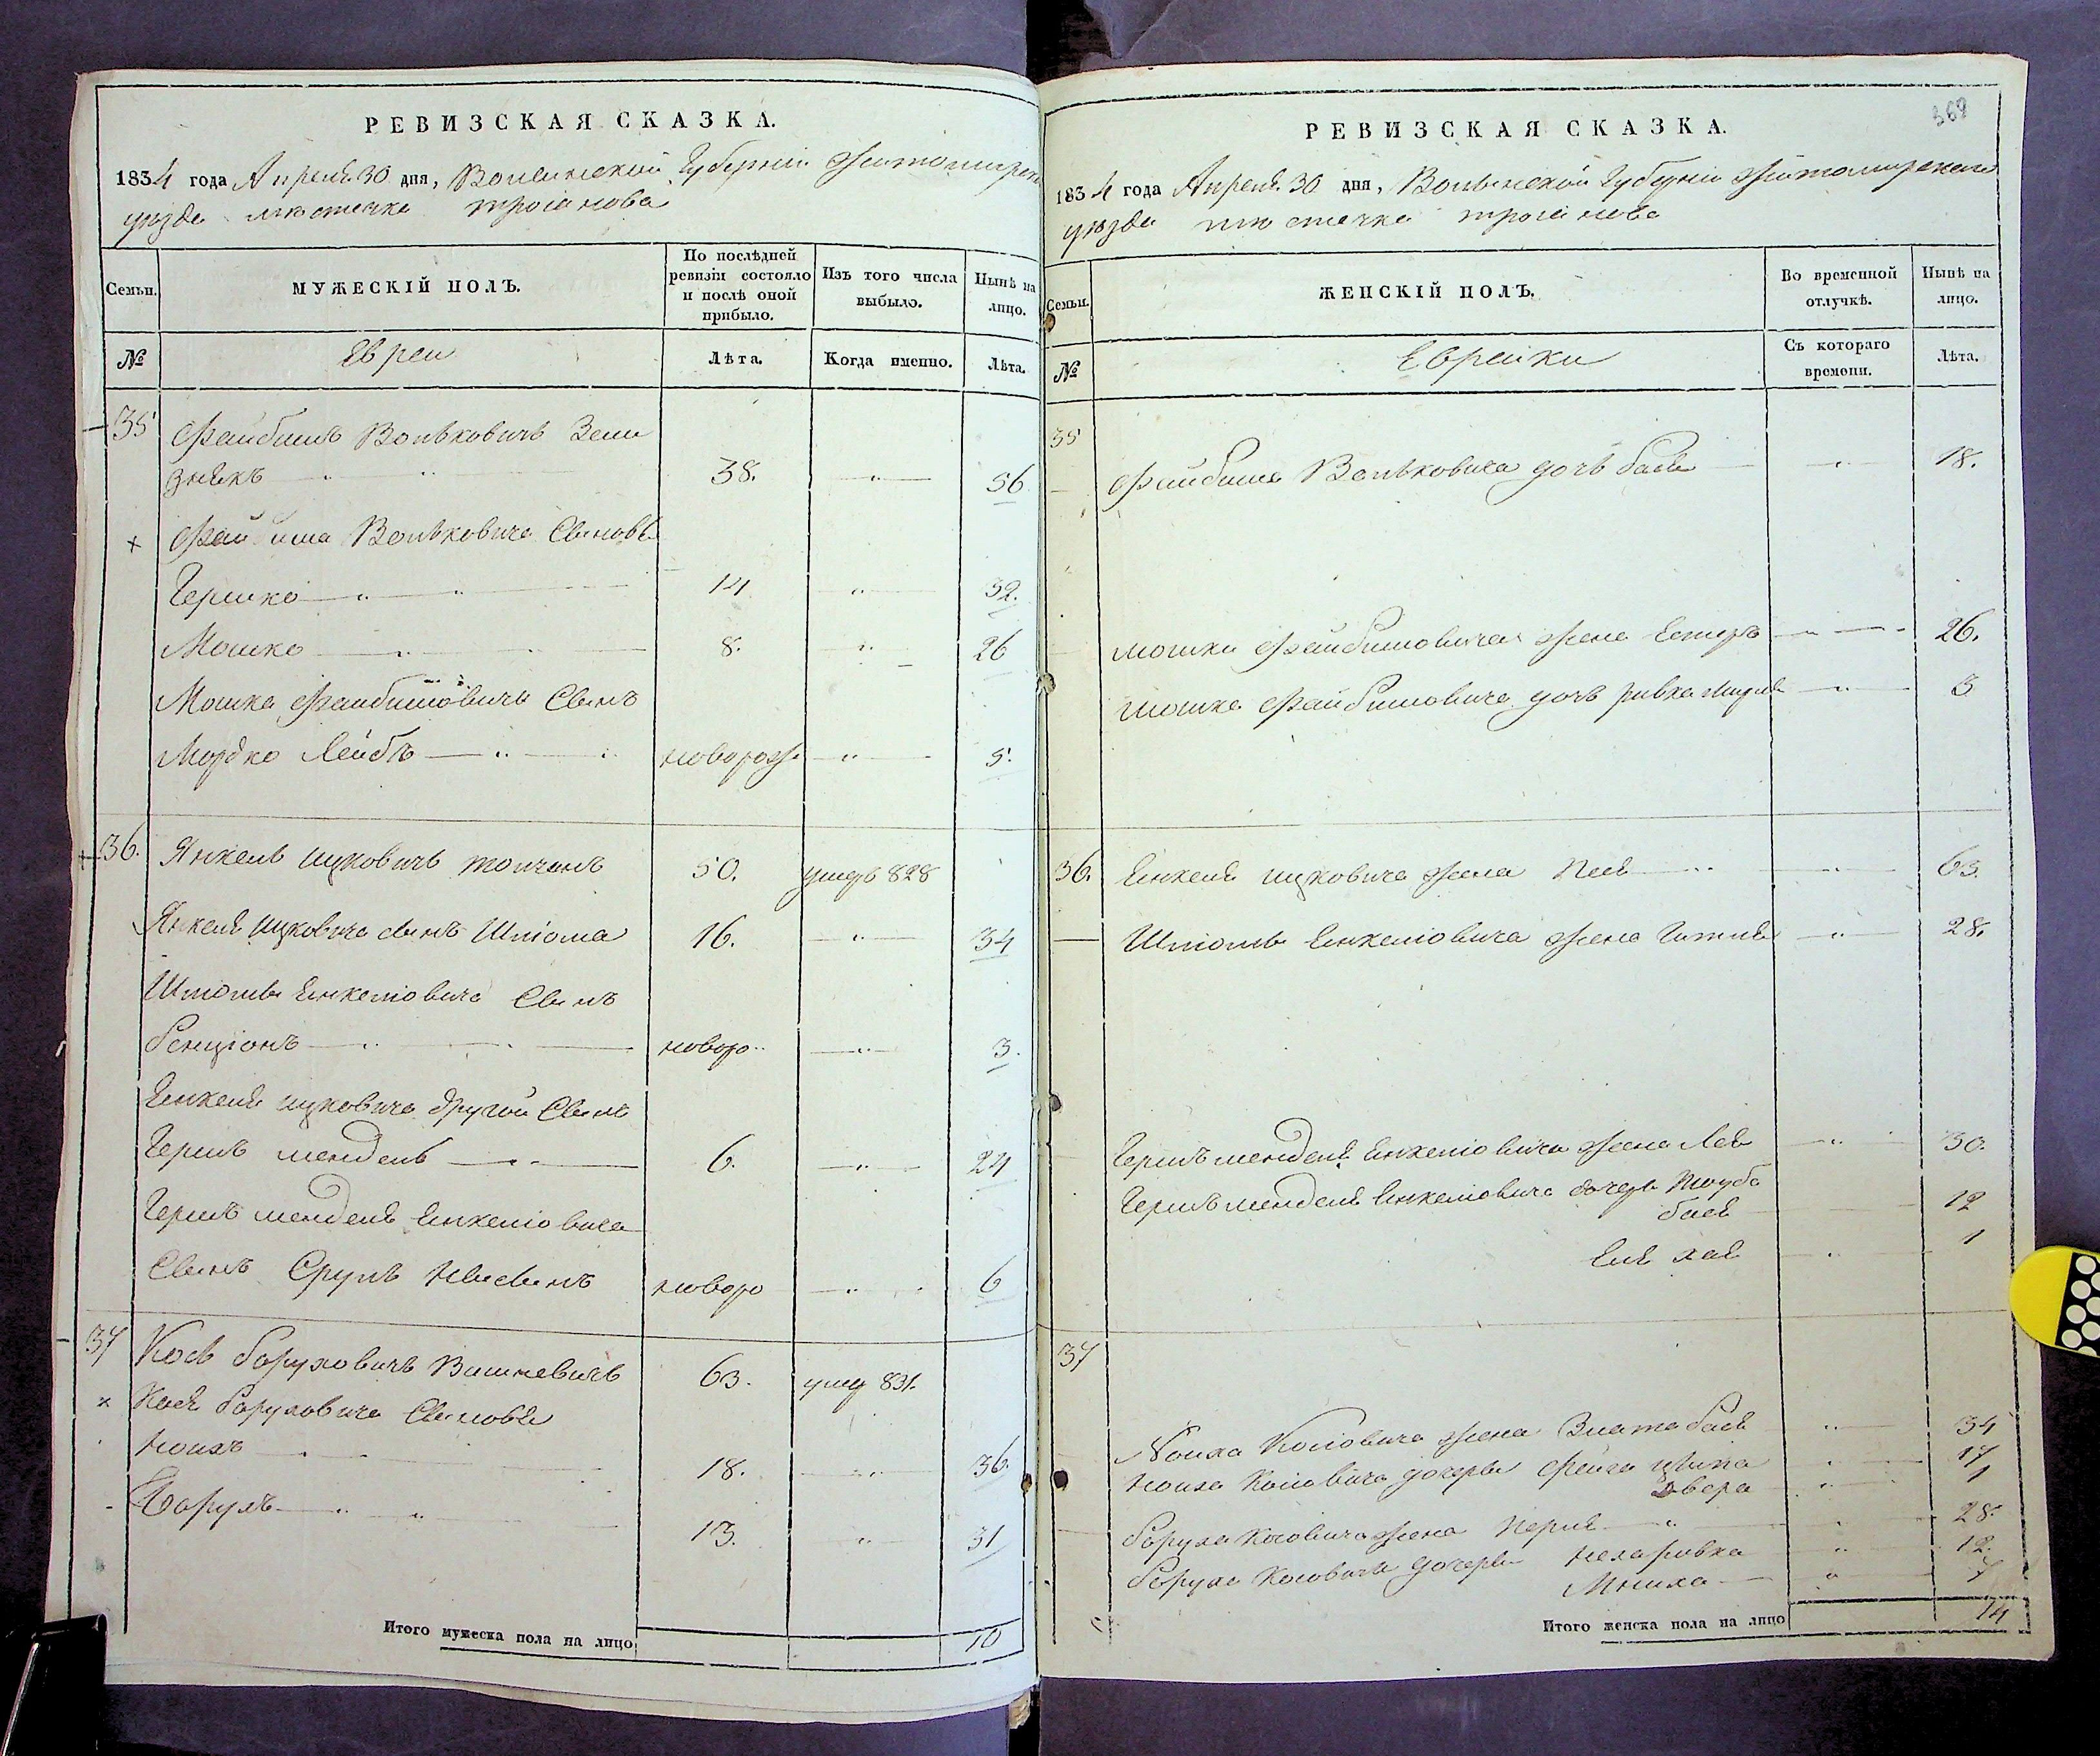 РЕВИЗСКАЯ СКАЗКА.
1834 года Апреля 30 дня, Волынской Губернiи Житомирск
уезда местечка Троянова
Семьи.
МУЖЕСКIЙ ПОЛЪ.
По послѣдней ревизiи состояло и послѣ оной прибыло.
Изъ того числа выбыло.
Нынѣ на лицо.
№
Евреи
Лѣта.
Когда именно.
Лѣта.
35 Файбишъ Волковичъ Зели
знякъ 38. 56
Волковича Сыновья
Гершко 14 32.
Мошко 8. 26
Мошка Файбишовича Сынъ
Мордко Лейбъ новорож 5.
36. Янкель Ицковичъ Толчинъ 50. умеръ 828
Янкеля Ицковича сынъ Шлiома 16. 34
Шлiомы Янкелiовича Сынъ
Бенцiонъ новоро 3.
Янкеля Ицковича другой Сынъ
Гершъ Мендель 6. 24
Гершъ Менделя Янкелiовича
Сынъ Сруль новоро 6
37 Боруховичъ Вишневичъ 63. умер 831.
Боруховича Сыновья
Ноихъ 18. 36.
Борухъ 13. 31
Итого мужеска пола на лицо 10
369
РЕВИЗСКАЯ СКАЗКА.
1834 года Апреля 30 дня, Волынской Губернiи Житомирскаго
уезда местечка Троянова
Семьи.
ЖЕНСКIЙ ПОЛЪ.
Во временной отлучкѣ.
Нынѣ на лицо.
№
Еврейки
Съ котораго времени.
Лѣта.
35
Файбиша Волковича дочь Бася 18.
Мошки Файбишовича жена Естеръ 26.
Мошка Файбишовича дочь Ривка 3
36. Янкеля Ицковича жена Песя 63.
Шлiомы Янкелiовича жена Гитля 28.
Гершъ Менделя Янкелiовича жена Лея 30.
Гершъ Менделя Янкелiовича дочери Тауба
Бася 12
Хая 1
37
Ноиха Косiовича жена Злата Бася 34
Ноиха Косiовича дочери Фейга Ципа 17
Двера 1
Боруха Косовича жена Перля 28.
Боруха Косовича дочери Неха Ривка 12.
7
Итого женска пола на лицо 14